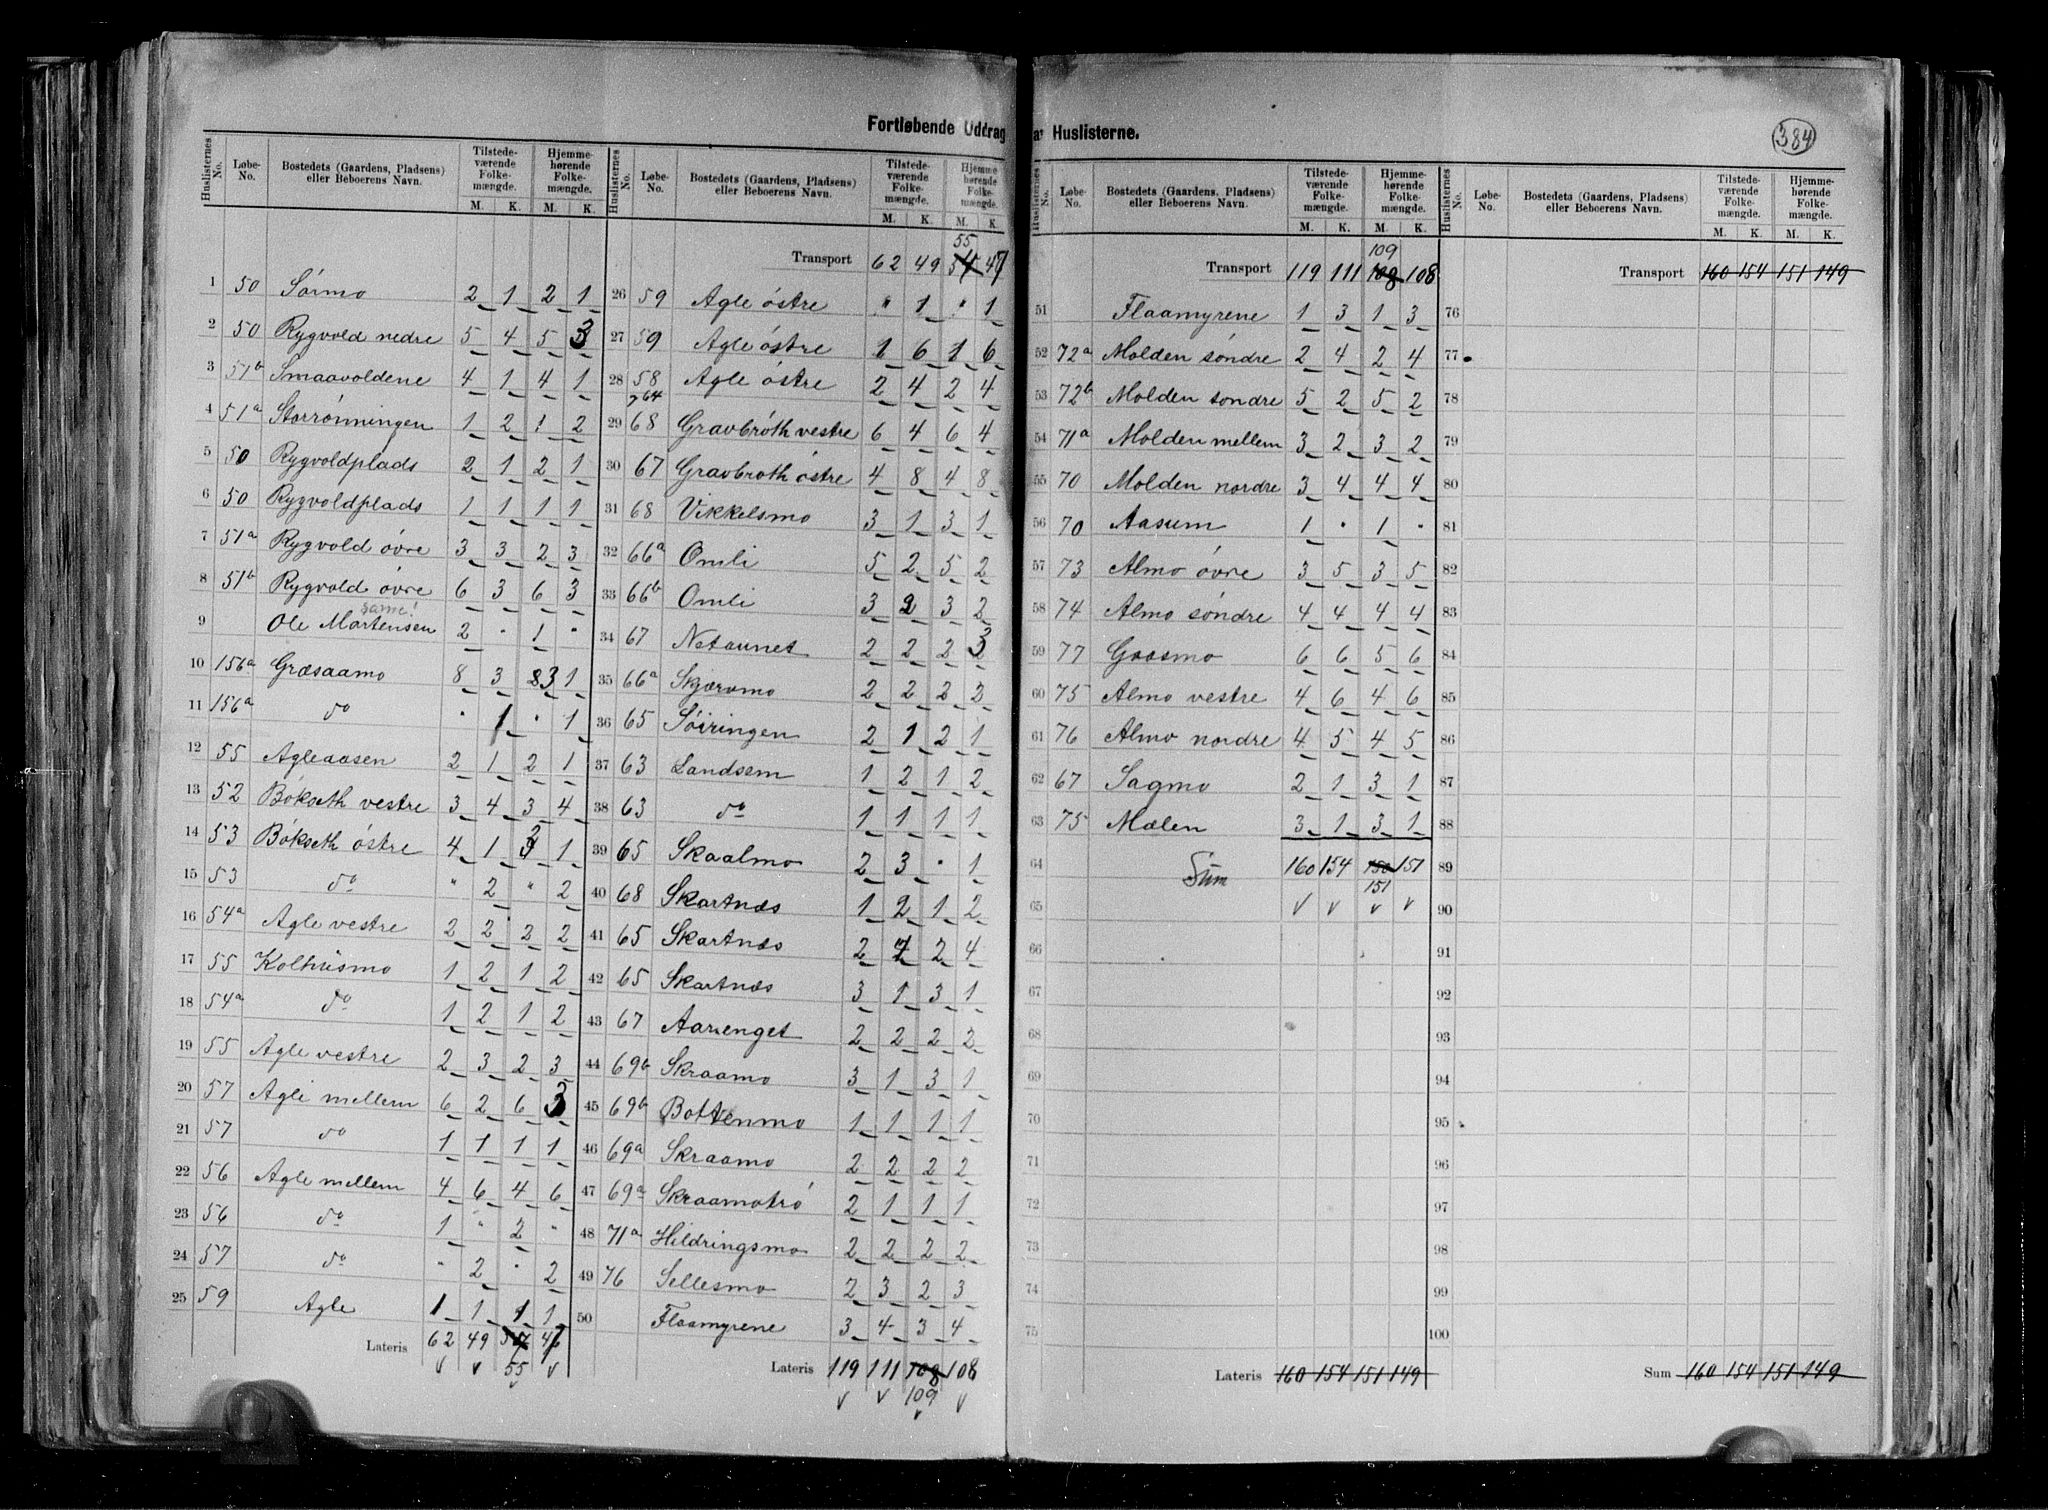 Fortløbende Uddrag af Huslisterne.
384
Huslisternes No. Løbe-No. Bostedets (Gaardens, Pladsens) eller Beboerens Navn. Tilstedeværende Folkemængde. M. K. Hjemmehørende Folkemængde. M. K.
1 50 Sørmo 2 1 2 1
2 50 Rygvold nedre 5 4 5 3
3 51b Smaavoldene 4 1 4 1
4 51a Storrönningen 1 2 1 2
5 50 Rygvoldplads 2 1 2 1
6 50 Rygvoldplads 1 1 1 1
7 51a Rygvold övre 3 3 2 3
8 51b Rygvold övre 6 3 6 3
same!
9 Ole Martensen 2 " 1 "
10 156a Græsaamo 8 3 3 1
11 156a do " 1 " 1
12 55 Agleaasen 2 1 2 1
13 52 Bökseth vestre 3 4 3 4
14 53 Bökseth östre 4 1 3 1
15 53 do " 2 " 2
16 54a Agle vestre 2 2 2 2
17 55 Kolhusmo 1 2 1 2
18 54a do 1 2 1 2
19 55 Agle vestre 2 3 2 3
20 57 Agle mellem 6 2 6 3
21 57 do 1 1 1 1
22 56 Agle mellem 4 6 4 6
23 56 do 1 " 2 "
24 57 do " 2 " 2
25 59 Agle 1 1 1 1
Lateris 62 49 47
55
Huslisternes No. Løbe-No. Bostedets (Gaardens, Pladsens) eller Beboerens Navn. Tilstedeværende Folkemængde. M. K. Hjemmehørende Folkemængde. M. K.
55
Transport 62 49 54 47
26 59 Agle östre " 1 " 1
27 59 Agle östre 1 6 1 6
28 58 Agle östre 2 4 2 4
64
29 68 Gravbröth vestre 6 4 6 4
30 67 Gravbroth östre 4 8 4 8
31 68 Vikkelsmo 3 1 3 1
32 66a Omli 5 2 5 2
33 66b Omli 3 2 3 2
34 67 Netaunet 2 2 2 3
35 66a Skjærvmo 2 2 2 2
36 65 Söiringen 2 1 2 1
37 63 Landsem 1 2 1 2
38 63 do 1 1 1 1
39 65 Skaalmo 2 3 " 1
40 68 Skartnæs 1 2 1 2
41 65 Skartnæs 2 7 2 4
42 65 Skartnæs 3 1 3 1
43 67 Aarenget 2 2 2 2
44 69b Skraamo 3 1 3 1
45 69b Bottenmo 1 1 1 1
46 69a Skraamo 2 2 2 2
47 69a Skraamotrö 2 1 1 1
48 71a Hildringsmo 2 2 2 2
49 76 Sellesmo 2 3 2 3
50 Flaamyrene 3 4 3 4
Lateris 119 111 108 108
109
Huslisternes No. Løbe-No. Bostedets (Gaardens, Pladsens) eller Beboerens Navn. Tilstedeværende Folkemængde. M. K. Hjemmehørende Folkemængde. M. K.
109
Transport 119 111 108 108
51 Flaamyrene 1 3 1 3
52 72a Molden söndre 2 4 2 4
53 72b Molden söndre 5 2 5 2
54 71a Molden mellem 3 2 3 2
55 70 Molden nordre 3 4 4 4
56 70 Aasum 1 " 1 "
57 73 Almo övre 3 5 3 5
58 74 Almo söndre 4 4 4 4
59 77 Gaasmo 6 6 5 6
60 75 Almo vestre 4 6 4 6
61 76 Almo nordre 4 5 4 5
62 67 Sagmo 2 1 3 1
63 75 Mælen 3 1 3 1
64 Sum 160 154 150 151
151
65
66
67
68
69
70
71
72
73
74
75
Lateris 160 154 151 149
Huslisternes No. Løbe-No. Bostedets (Gaardens, Pladsens) eller Beboerens Navn. Tilstedeværende Folkemængde. M. K. Hjemmehørende Folkemængde. M. K.
Transport 160 154 151 149
76
77
78
79
80
81
82
83
84
85
86
87
88
89
90
91
92
93
94
95
96
97
98
99
100
Sum 160 154 151 149